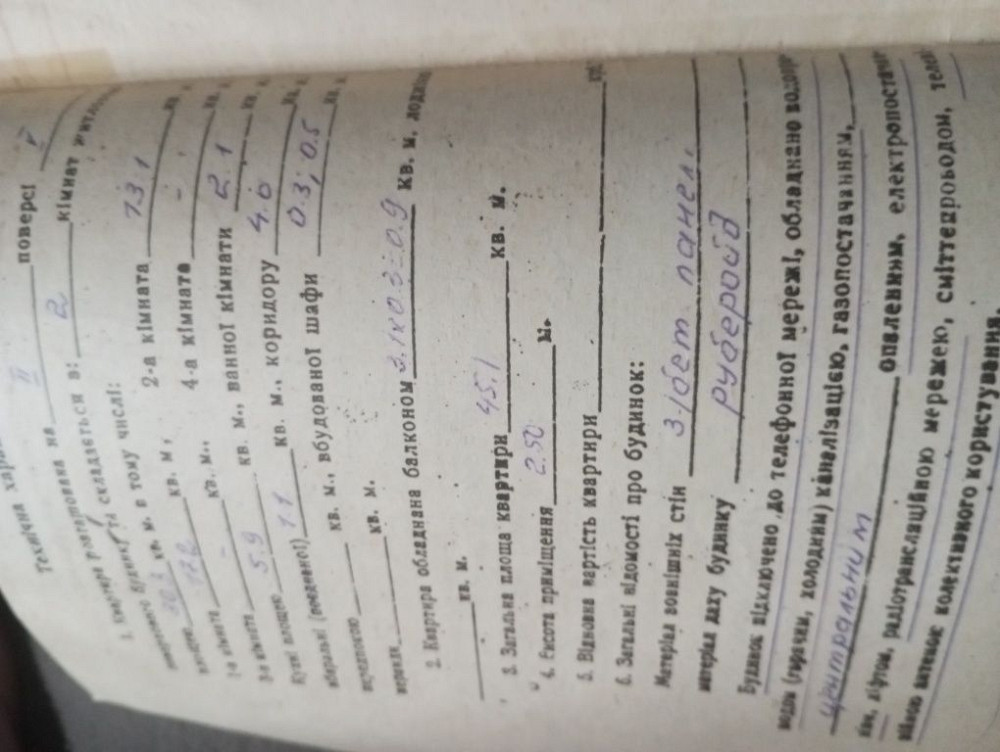 Технічна
1. Квартира розташована на II поверсі V
будинку та складається з: 2 кімнат
кв. м. в тому числі:
17.2 кв. м., 2-а кімната 13.1 кв.
кімната - кв. м., 4-а кімната - кв.
5.9 кв. м., ванної кімнати 2.1 кв.
1.1 кв. м., коридору 4.0 кв.
кв. м., вбудованої шафи 0.3; 0.5 кв.
кв. м.
2. Квартира обладнана балконом 3.1х0.3=0.9 кв. м. лоджією
кв. м.
3. Загальна площа квартири 45.1 кв. м.
4. Висота приміщення 2.50 м.
5. Відновна вартість квартири
6. Загальні відомості про будинок:
Матеріал зовнішніх стін з-/бет. панел.
матеріал даху будинку рубероїд
Будинок підключено до телефонної мережі, обладнано
водом (гарячим, холодним) каналізацією, газопостачанням,
центральним опаленням, електропостачан
ням, ліфтом, радіотрансляційною мережею, сміттєпроводом,
колективного користування.